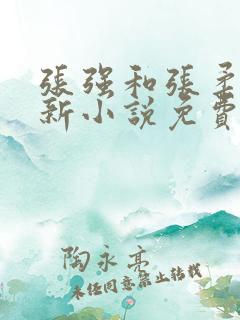 張强和張柔
新小説免費
陶永亮
未经同意禁止转载